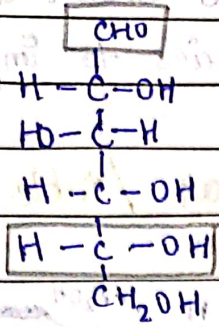 CHO
H - C - OH
HO - C - H
H - C - OH
H - C - OH
CH₂OH